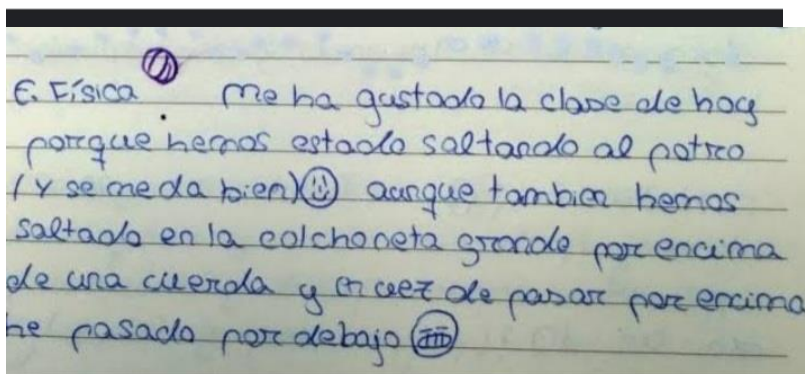 E. Física Me ha gustado la clase de hoy
porque hemos estado saltando al potro
(y se me da bien) aunque tambien hemos
saltado en la colchoneta grande por encima
de una cuerda y en vez de pasar por encima
he pasado por debajo